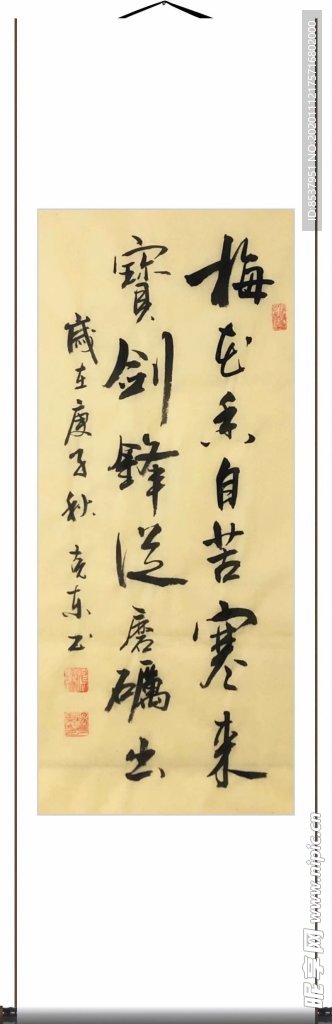 梅花香自苦寒来
寶劍鋒從磨礪出
歲在庚子秋 克東书
ID:8537951 NO.20201112175716802000
昵享网 www.nipic.cn